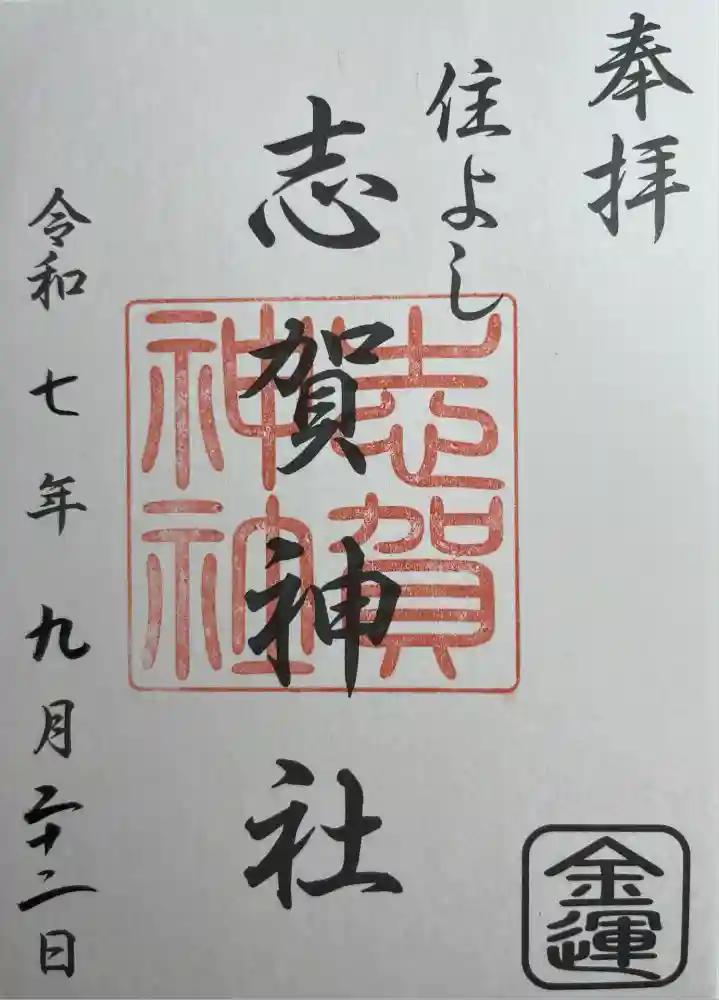 奉拝
住よし
志賀神社
志賀神社
金運
令和七年九月二十二日